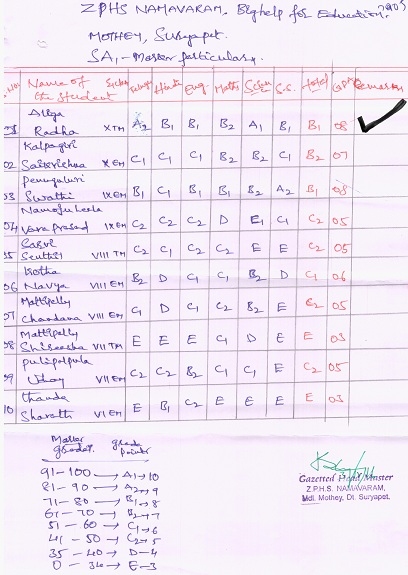 ZPHS NAMAVARAM, Big help for Education,
MOTHEY, Suryapet.
SA1 - Master particulars.
S.No Name of the Student Telugu Hindi Eng Maths Scien S.S. Total GPA Remarks
01 Radha X TM A2 B1 B1 B2 A1 B1 B1 08
02 Kalpagiri Saikrishna X EM C1 C1 C1 B2 B2 C1 B2 07
03 Penuguluri Swathi IX EM B1 C1 B1 B1 B2 A2 B1 08
04 Vara Prasad IX EM C2 C2 C2 D E C1 C2 05
05 VIII TM C2 C1 C2 C2 E E C2 05
06 Kotha Navya VIII EM B2 D C1 C1 B2 D C1 06
07 Mattipelly Chandana VIII EM C1 D C1 C2 B2 E C2 05
08 Mattipelly Shireesha VII TM E E E C1 D E E 03
09 Pulipalpula Uday VII EM C2 C2 B2 C1 C1 E C2 05
10 Thanda Sharath VI EM E B1 C2 E E E E 03
Master grades. grade points
91-100 → A1 → 10
81-90 → A2 → 9
71-80 → B1 → 8
61-70 → B2 → 7
51-60 → C1 → 6
41-50 → C2 → 5
35-40 → D-4
0-34 → E-3
Gazetted Head Master
Z.P.H.S. NAMAVARAM,
Mdl. Mothey, Dt. Suryapet.